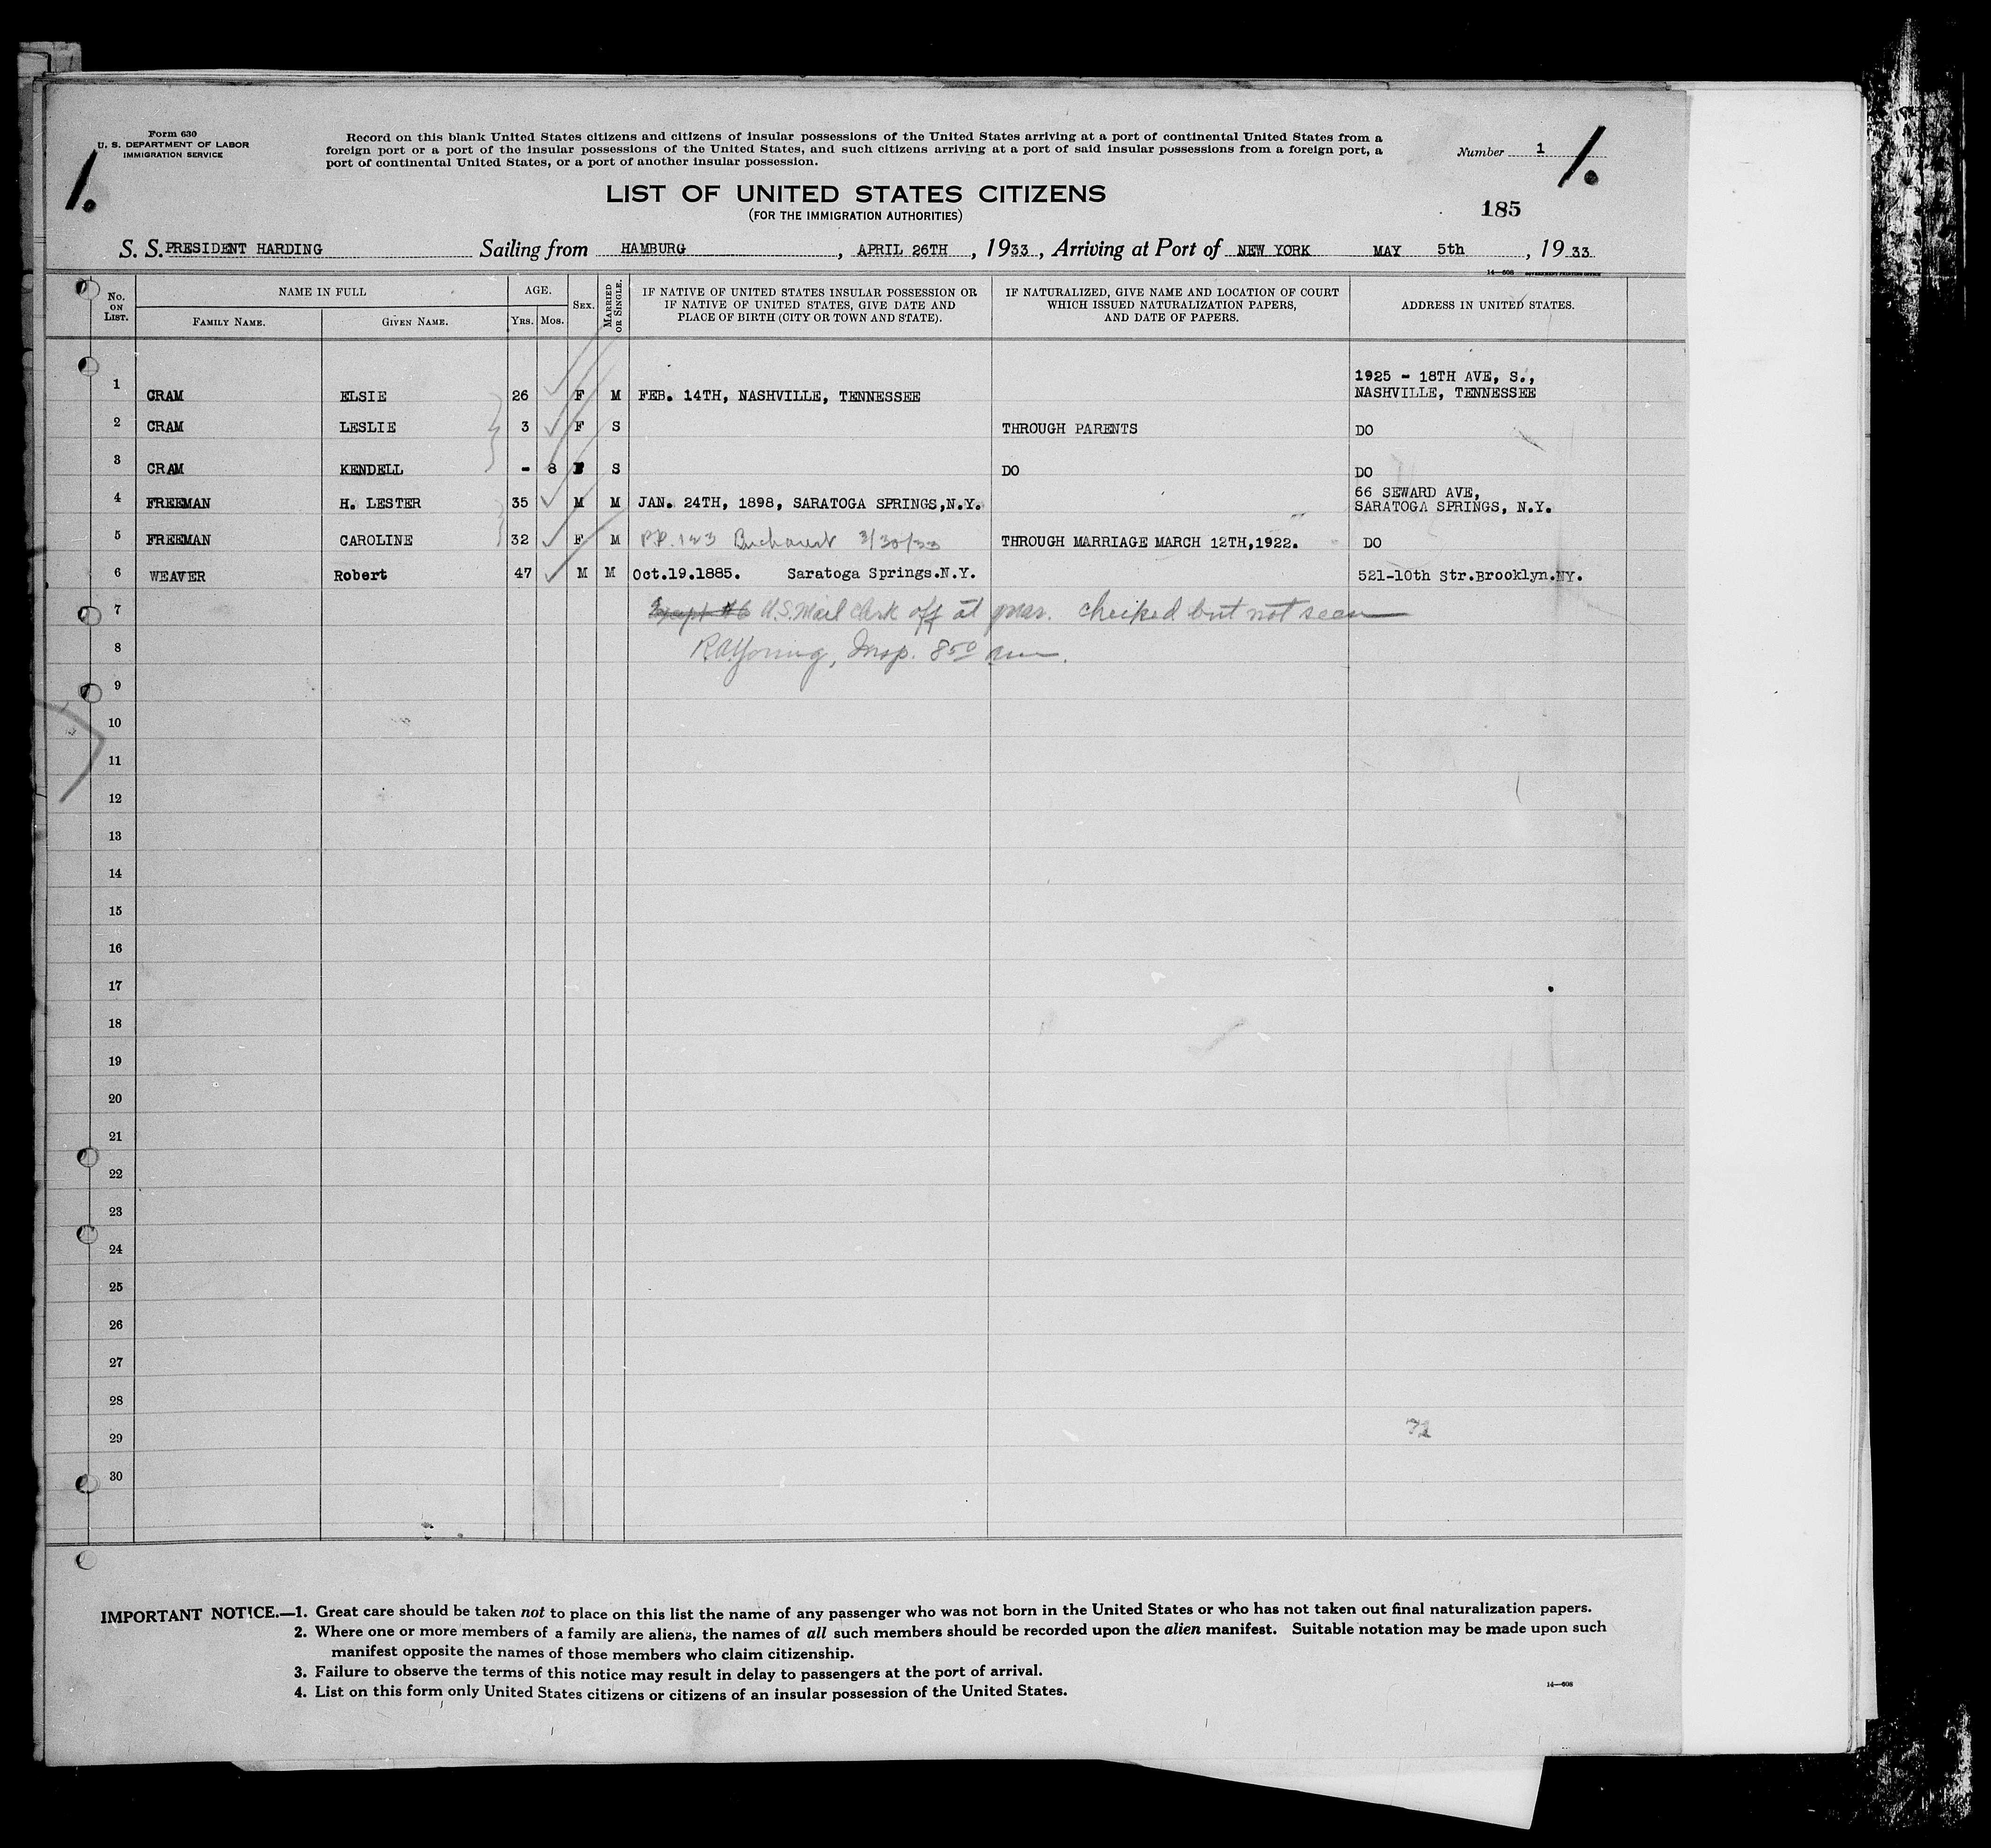 Form 630
U. S. DEPARTMENT OF LABOR
IMMIGRATION SERVICE
1.
Record on this blank United States citizens and citizens of insular possessions of the United States arriving at a port of continental United States from a
foreign port or a port of the insular possessions of the United States, and such citizens arriving at a port of said insular possessions from a foreign port, a
port of continental United States, or a port of another insular possession.
Number 1
1.
LIST OF UNITED STATES CITIZENS
(FOR THE IMMIGRATION AUTHORITIES)
185
S. S. PRESIDENT HARDING Sailing from HAMBURG, APRIL 26TH, 1933, Arriving at Port of NEW YORK MAY 5th, 1933
14—608 GOVERNMENT PRINTING OFFICE
No. ON LIST. NAME IN FULL FAMILY NAME. GIVEN NAME. AGE. Yrs. Mos. SEX. MARRIED OR SINGLE. IF NATIVE OF UNITED STATES INSULAR POSSESSION OR IF NATIVE OF UNITED STATES, GIVE DATE AND PLACE OF BIRTH (CITY OR TOWN AND STATE). IF NATURALIZED, GIVE NAME AND LOCATION OF COURT WHICH ISSUED NATURALIZATION PAPERS, AND DATE OF PAPERS. ADDRESS IN UNITED STATES.
1 CRAM ELSIE 26 F M FEB. 14TH, NASHVILLE, TENNESSEE 1925 - 18TH AVE, S., NASHVILLE, TENNESSEE
2 CRAM LESLIE 3 F S THROUGH PARENTS DO
3 CRAM KENDELL - 8 S DO DO
4 FREEMAN H. LESTER 35 M M JAN. 24TH, 1898, SARATOGA SPRINGS,N.Y. 66 SEWARD AVE, SARATOGA SPRINGS, N.Y.
5 FREEMAN CAROLINE 32 F M P.P. 123 Bucharest 3/30/33 THROUGH MARRIAGE MARCH 12TH,1922. DO
6 WEAVER Robert 47 M M Oct.19.1885. Saratoga Springs.N.Y. 521-10th Str.Brooklyn.NY.
7 Except #6 U.S. Mail Clerk off at checked but not seen
8 RAYoung, Insp. 8 50
9
10
11
12
13
14
15
16
17
18
19
20
21
22
23
24
25
26
27
28
29
30
IMPORTANT NOTICE.—1. Great care should be taken not to place on this list the name of any passenger who was not born in the United States or who has not taken out final naturalization papers.
2. Where one or more members of a family are aliens, the names of all such members should be recorded upon the alien manifest. Suitable notation may be made upon such
manifest opposite the names of those members who claim citizenship.
3. Failure to observe the terms of this notice may result in delay to passengers at the port of arrival.
4. List on this form only United States citizens or citizens of an insular possession of the United States.
14—608